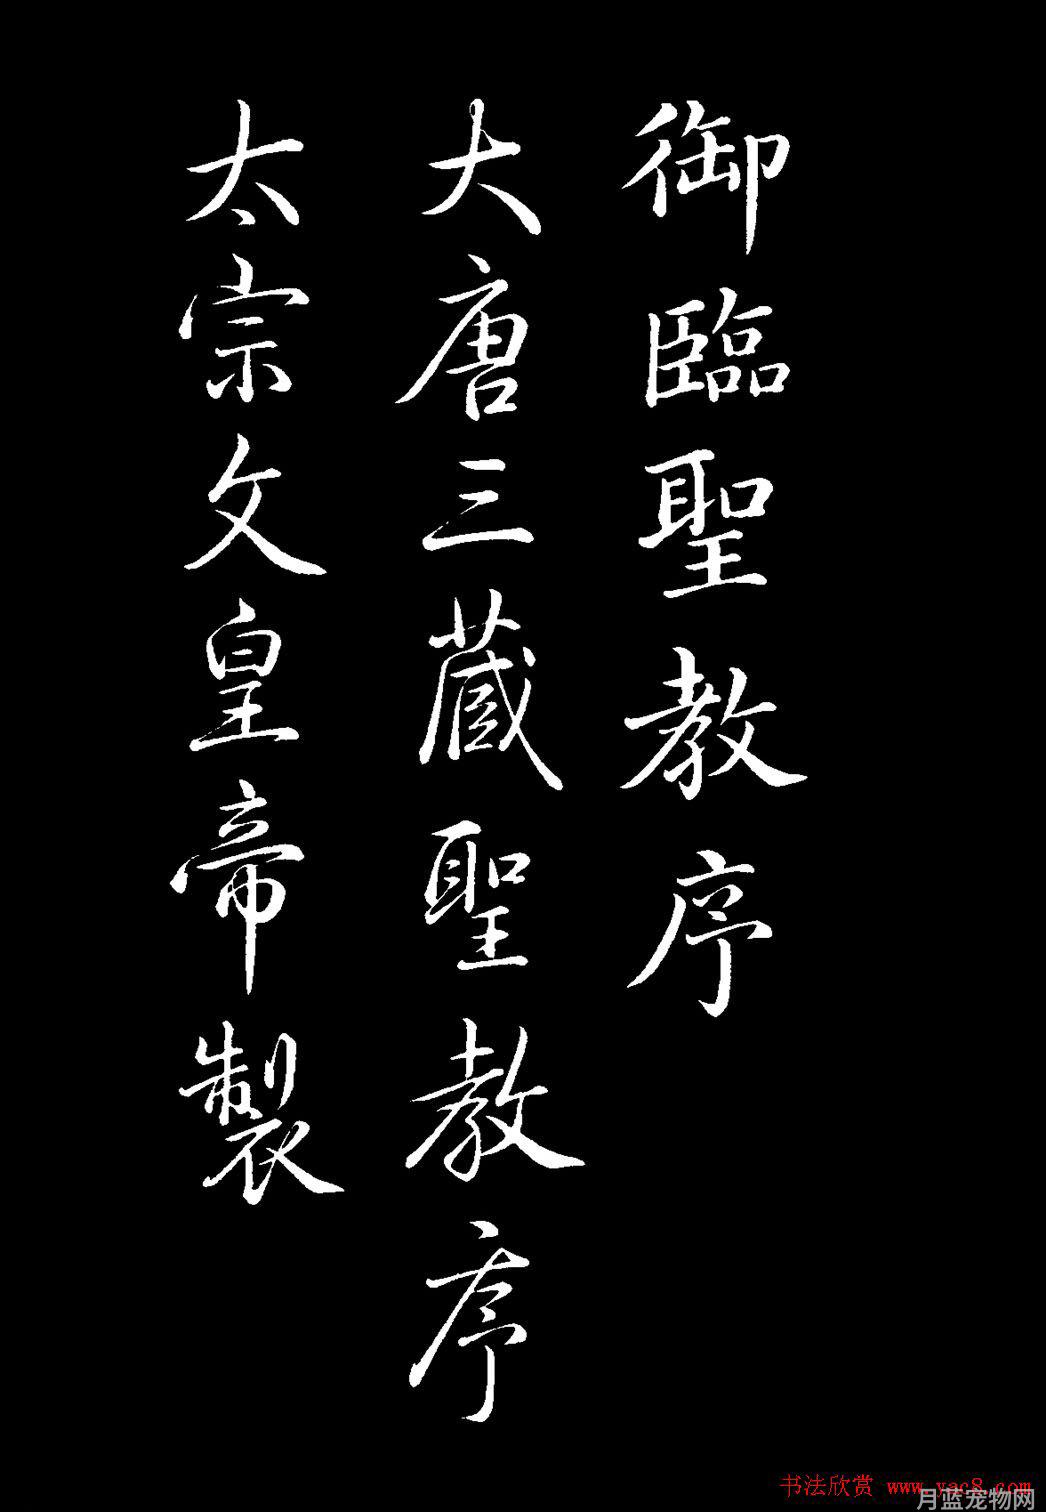 御臨聖教序
大唐三藏聖教序
太宗文皇帝製
书法欣赏 www.yac8.com
月蓝宠物网